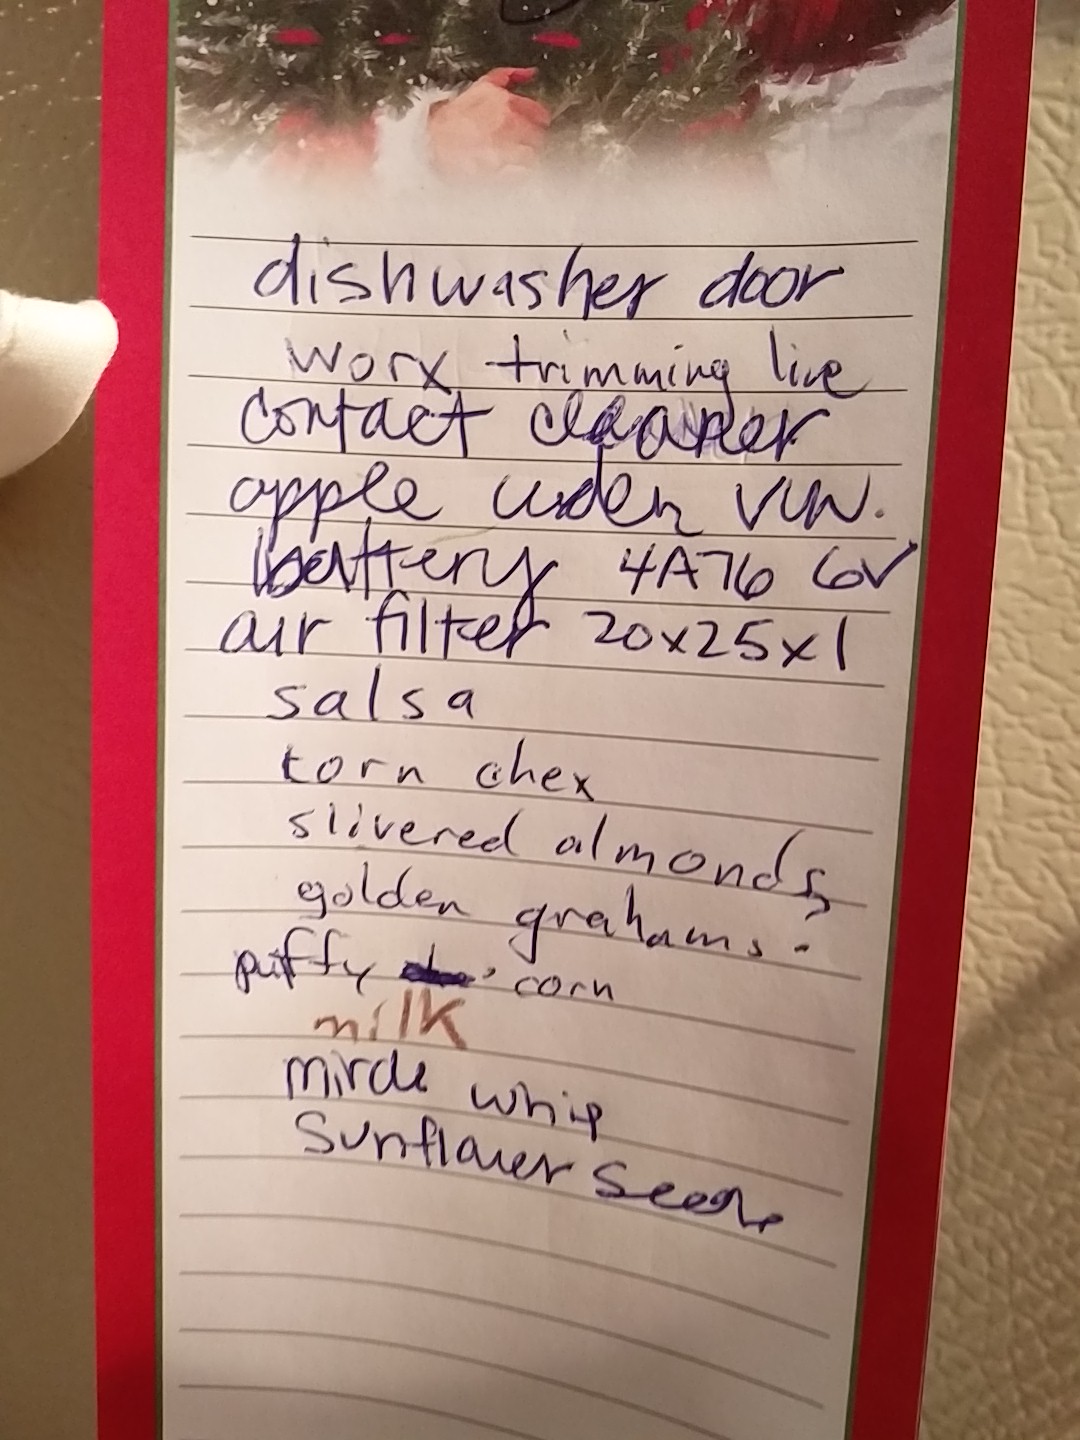 dishwasher door
worx trimming line
contact cleaner
apple cider vin.
battery 4A76 6V
air filter 20x25x1
salsa
corn chex
slivered almonds
golden grahams?
puffy corn
milk
mircle whip
Sunflower Seeds